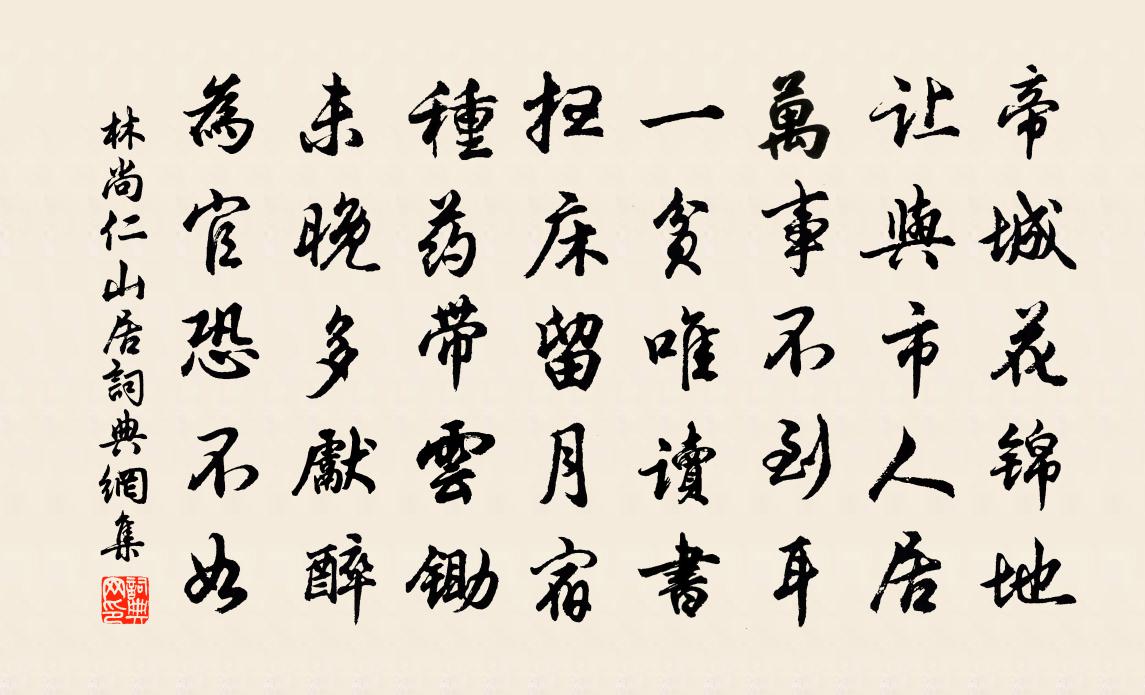 帝城花锦地
让與市人居
萬事不到耳
一贫唯讀書
扫床留月宿
種药带雲鋤
未晚多獻醉
為官恐不如
林尚仁山居詞典網集
詞典网印